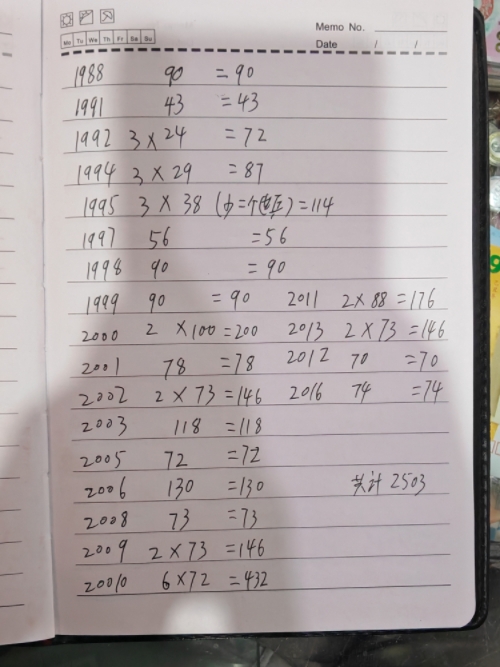 Memo No.
Mo Tu We Th Fr Sa Su
Date / /
1988 90 =90
1991 43 =43
1992 3×24 =72
1994 3×29 =87
1995 3×38 (少=个)=114
1997 56 =56
1998 90 =90
1999 90 =90 2011 2×88=176
2000 2×100=200 2013 2×73=146
2001 78 =78 2012 70 =70
2002 2×73=146 2016 74 =74
2003 118 =118
2005 72 =72
2006 130 =130 共计 2503
2008 73 =73
2009 2×73 =146
20010 6×72 =432